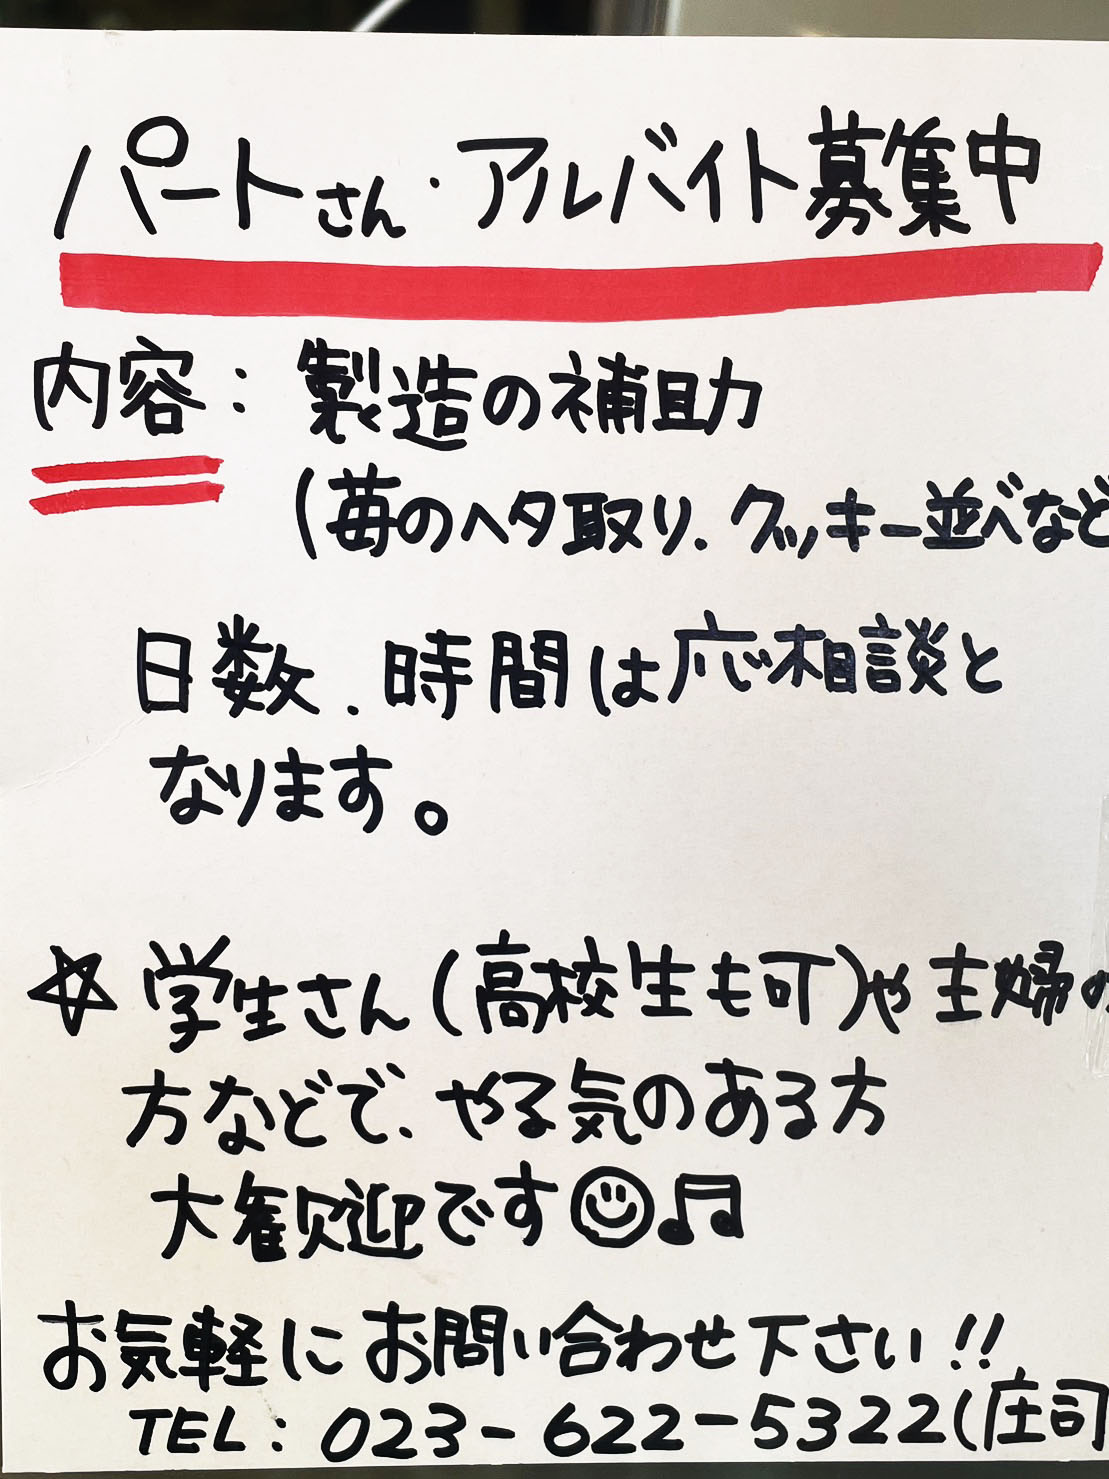 パートさん・アルバイト募集中
内容: 製造の補助
(苺のヘタ取り、クッキー並べなど
日数、時間は応相談と
なります。
☆ 学生さん(高校生も可)や主婦の
方などで、やる気のある方
大歓迎です☺♫
お気軽にお問い合わせ下さい!!
TEL: 023-622-5322(庄司